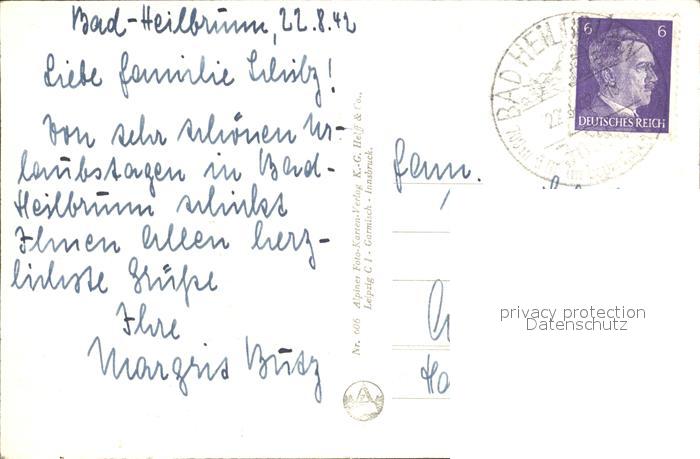 Bad-Heilbrunn, 22.8.42
Liebe Familie
Von sehr schönen Ur-
laubstagen in Bad-
Heilbrunn schickt
Ihnen Allen herz-
lichste Grüße
Ihre
Margrit Butz
Nr. 606 Alpiner Foto-Karten-Verlag K.-G. Helff & Co.,
Leipzig C 1 - Garmisch - Innsbruck.
BAD HEILBR
6 6
DEUTSCHES REICH
Fam.
privacy protection
Datenschutz